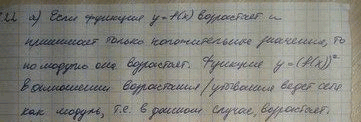 а) Если функция y=f(x) возрастает и
принимает только положительные значения, то
по модулю она возрастает. Функция y=(f(x))²
в отношении возрастания/убывания ведет себя
как модуль, т.е. в данном случае, возрастает.